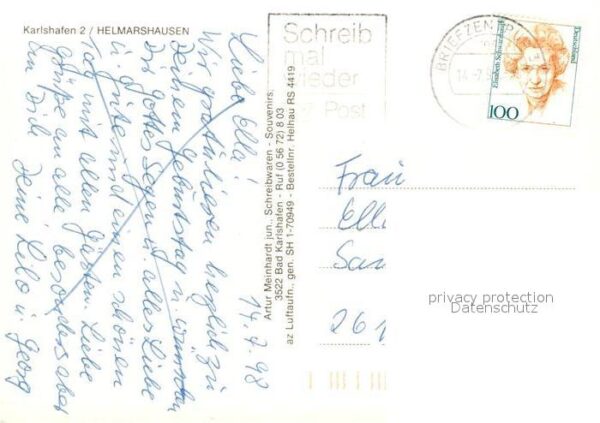 Karlshafen 2 / HELMARSHAUSEN
14.7.98
Liebe Ella!
Wir gratulieren herzlich zu
Deinem Geburtstag u. wünschen
Dir Gottes Segen u. alles Liebe
u. Gute und einen schönen
Tag mit allen Gästen. Liebe
Grüße an alle besonders aber
an Dich Deine Lilo u. Georg
Artur Meinhardt jun., Schreibwaren - Souvenirs,
3522 Bad Karlshafen - Ruf (0 56 72) 8 03
az Luftaufn., gen. SH 1-70949 - Bestellnr. Helhau RS 4419
Schreib
mal
wieder
Post
BRIEFZEN
14.-7.9
Deutschland
Elisabeth Schwarzhaupt
100
Frau
Ell
San
261
privacy protection
Datenschutz